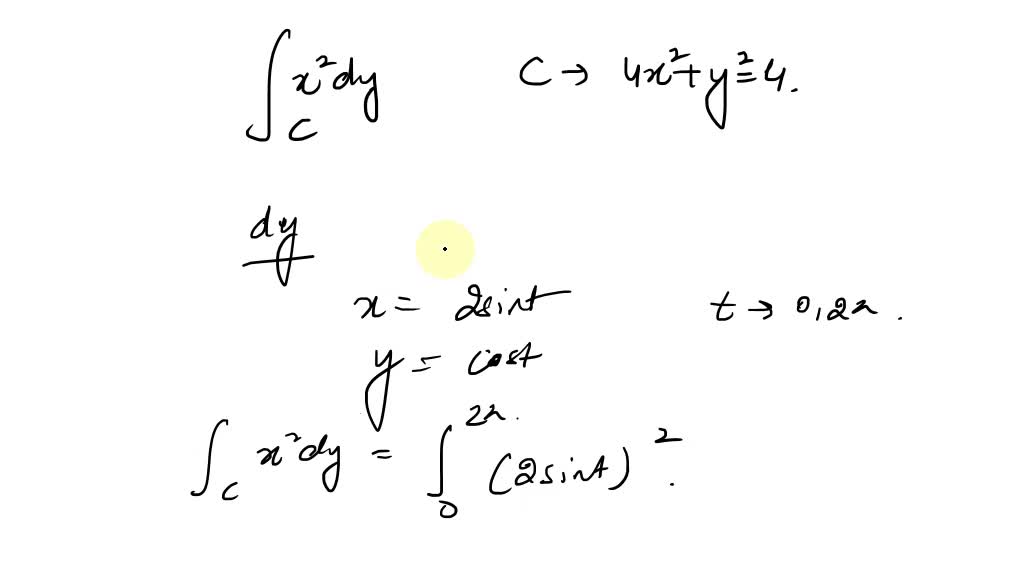 ∫_C x²dy C → 4x²+y²=4.
dy
x = 2sint t → 0,2π.
y = cost
∫_C x²dy = ∫_0^2π. (2sint)².